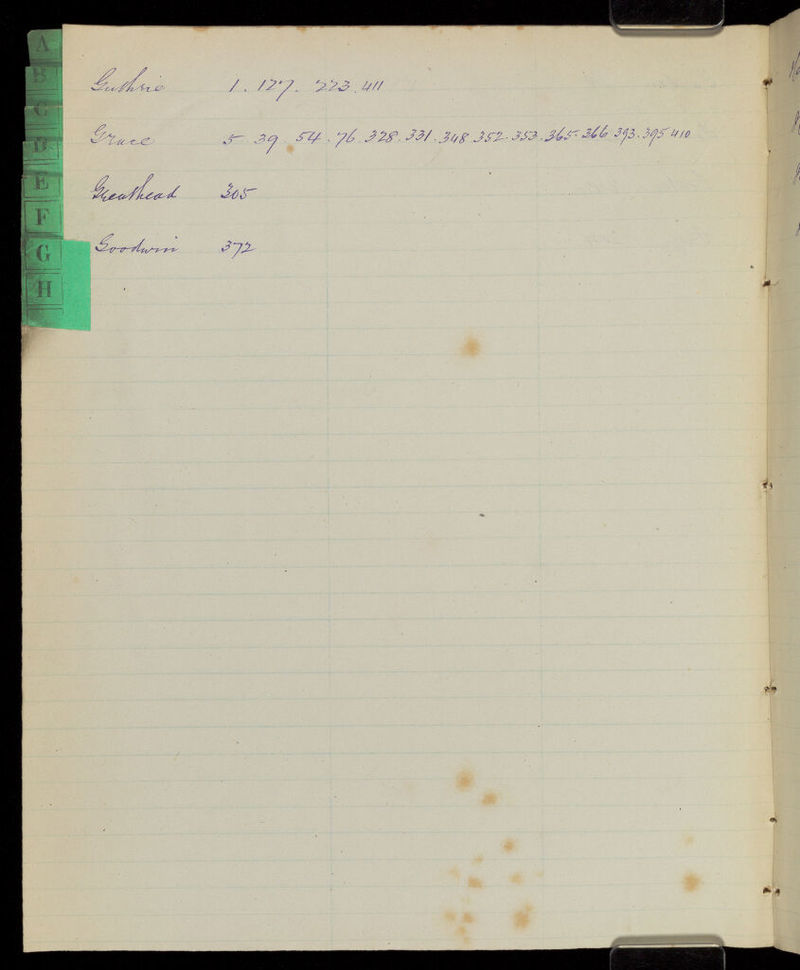 A
B
C
D
E
F
G
H
Guthrie 1. 127. 223. 411
Grace 5. 39. 54. 76. 328. 331. 348. 352. 353. 365. 366. 393. 395. 410
Greathead 305
Goodwin 372